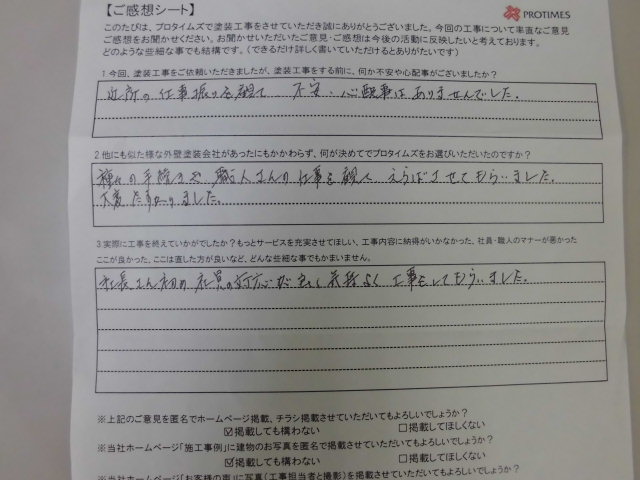 【ご感想シート】
PROTIMES
このたびは、プロタイムズで塗装工事をさせていただき誠にありがとうございました。今回の工事について率直なご意見
ご感想をお聞かせください。お聞かせいただいたご意見・ご感想は今後の活動に反映したいと考えております。
どのような些細な事でも結構です。(できるだけ詳しく書いていただけるとありがたいです)
1.今回、塗装工事をご依頼いただきましたが、塗装工事をする前に、何か不安や心配事がございましたか?
近所の仕事振りを観て 不安、心配事はありませんでした。
2.他にも似た様な外壁塗装会社があったにもかかわらず、何が決めてでプロタイムズをお選びいただいたのですか?
種々の手続きや 職人さんの仕事を観て えらばさせてもらいました。
大変たすかりました。
3.実際に工事を終えていかがでしたか?もっとサービスを充実させてほしい、工事内容に納得がいかなかった、社員・職人のマナーが悪かった
ここが良かった、ここは直した方が良いなど、どんな些細な事でもかまいません。
社長さん初め 社員の対応が良く 気持よく 工事をしてもらいました。
※上記のご意見を匿名でホームページ掲載、チラシ掲載させていただいてもよろしいでしょうか?
☑掲載しても構わない □掲載してほしくない
※当社ホームページ「施工事例」に建物のお写真を匿名で掲載させていただいてもよろしいでしょうか?
☑掲載しても構わない □掲載してほしくない
※当社ホームページ「お客様の声」に写真(工事担当者と撮影)を掲載させていただいてもよろしいでしょうか?